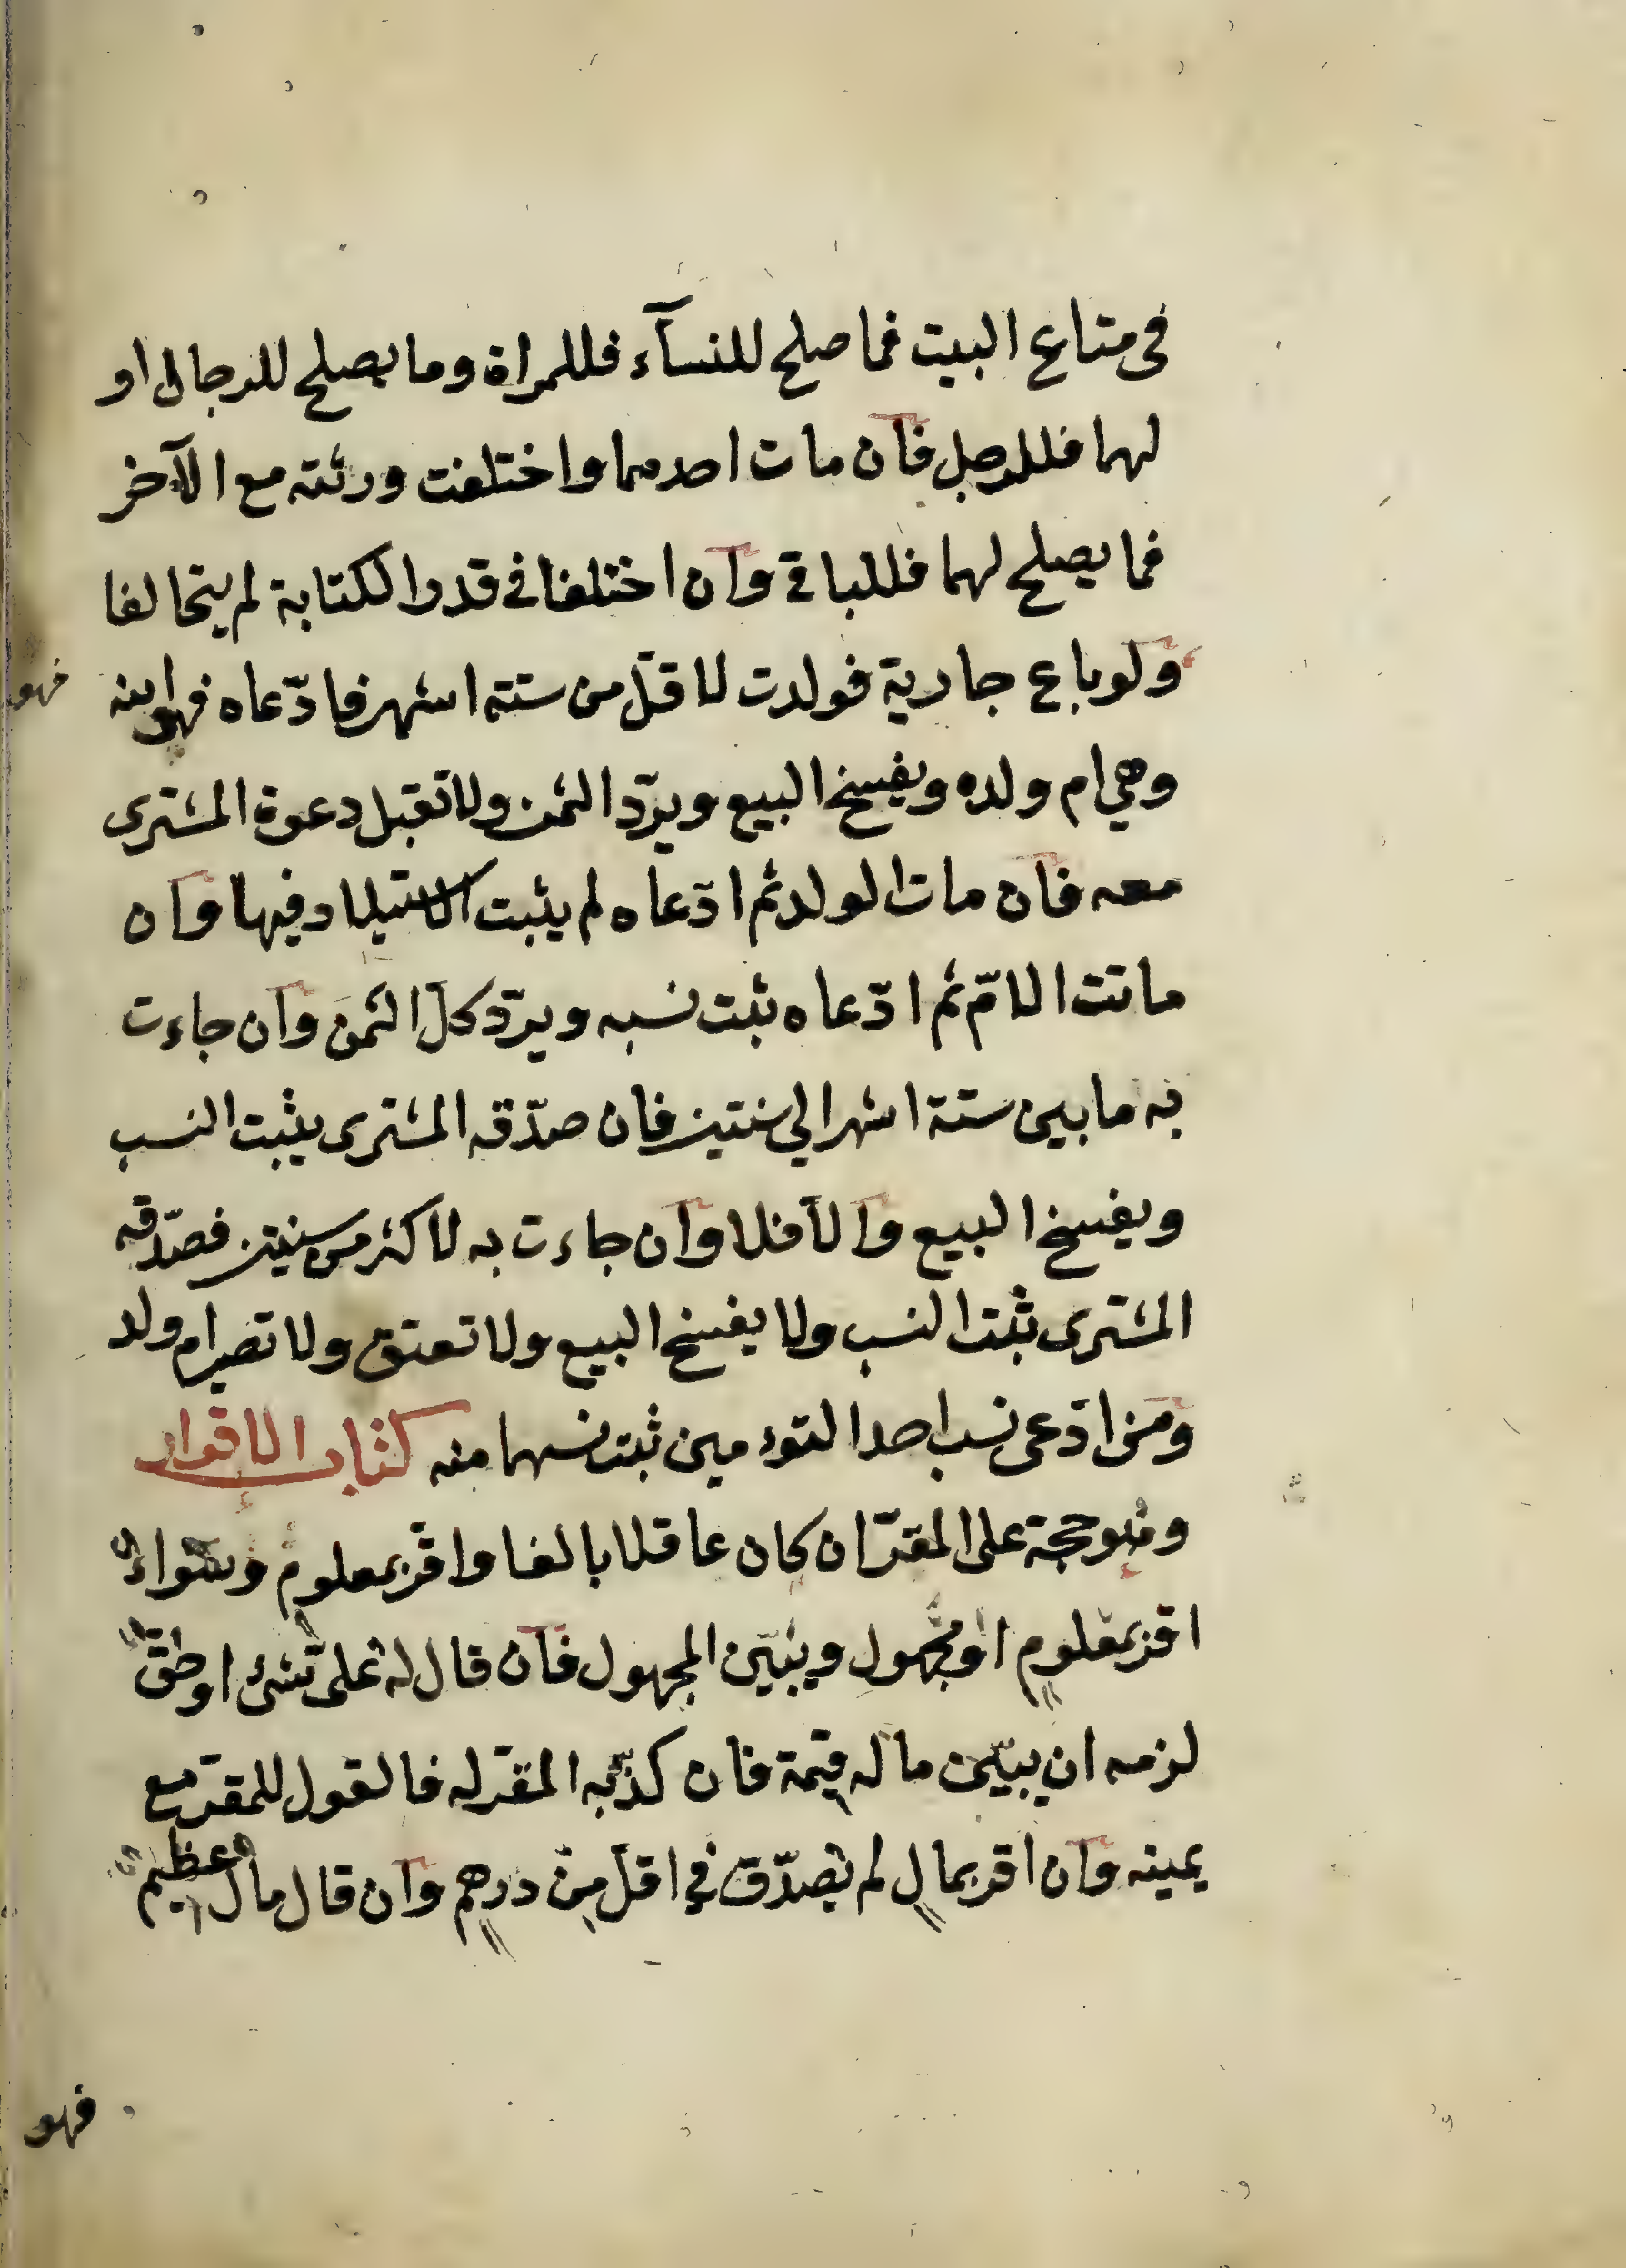 فى متاع البيت فما صلح للنسآء فللمراة وما يصلح للرجال او
لهما فللرجل فان مات احدهما واختلفت ورثته مع الآخر
فما يصلح لهما فللباقى وان اختلفا فى قدر الكتابة لم يتحالفا
ولو باع جارية فولدت لاقل من ستة اشهر فادّعاه فهو ابنه
فهو
وهي ام ولده ويفسخ البيع ويردّ الثمن ولا تقبل دعوة المشترى
معه فان مات الولد ثم ادّعاه لم يثبت الاستيلاد فيها وان
ماتت الامّ ثم ادّعاه ثبت نسبه ويردّ كلّ الثمن وان جاءت
به ما بين ستة اشهر الي سنتين فان صدّقه المشترى يثبت النسب
ويفسخ البيع والّا فلا وان جاءت به لاكثر من سنتين فصدّقه
المشترى ثبت النسب ولا يفسخ البيع ولا تعتق ولا تصير ام ولد
ومن ادّعى نسب احد التوءمين ثبت نسبهما منه كتاب الاقرار
وهو حجة على المقرّ ان كان عاقلا بالغا واقرّ بمعلوم وسواء
اقرّ بمعلوم او مجهول ويبيّن المجهول فان قال له على شئ او حق
لزمه ان يبيّن ما له قيمة فان كذّبه المقرّ له فالقول للمقرّ مع
يمينه وان اقر بمال لم يصدّق في اقلّ من درهم وان قال مال عظيم
فهو